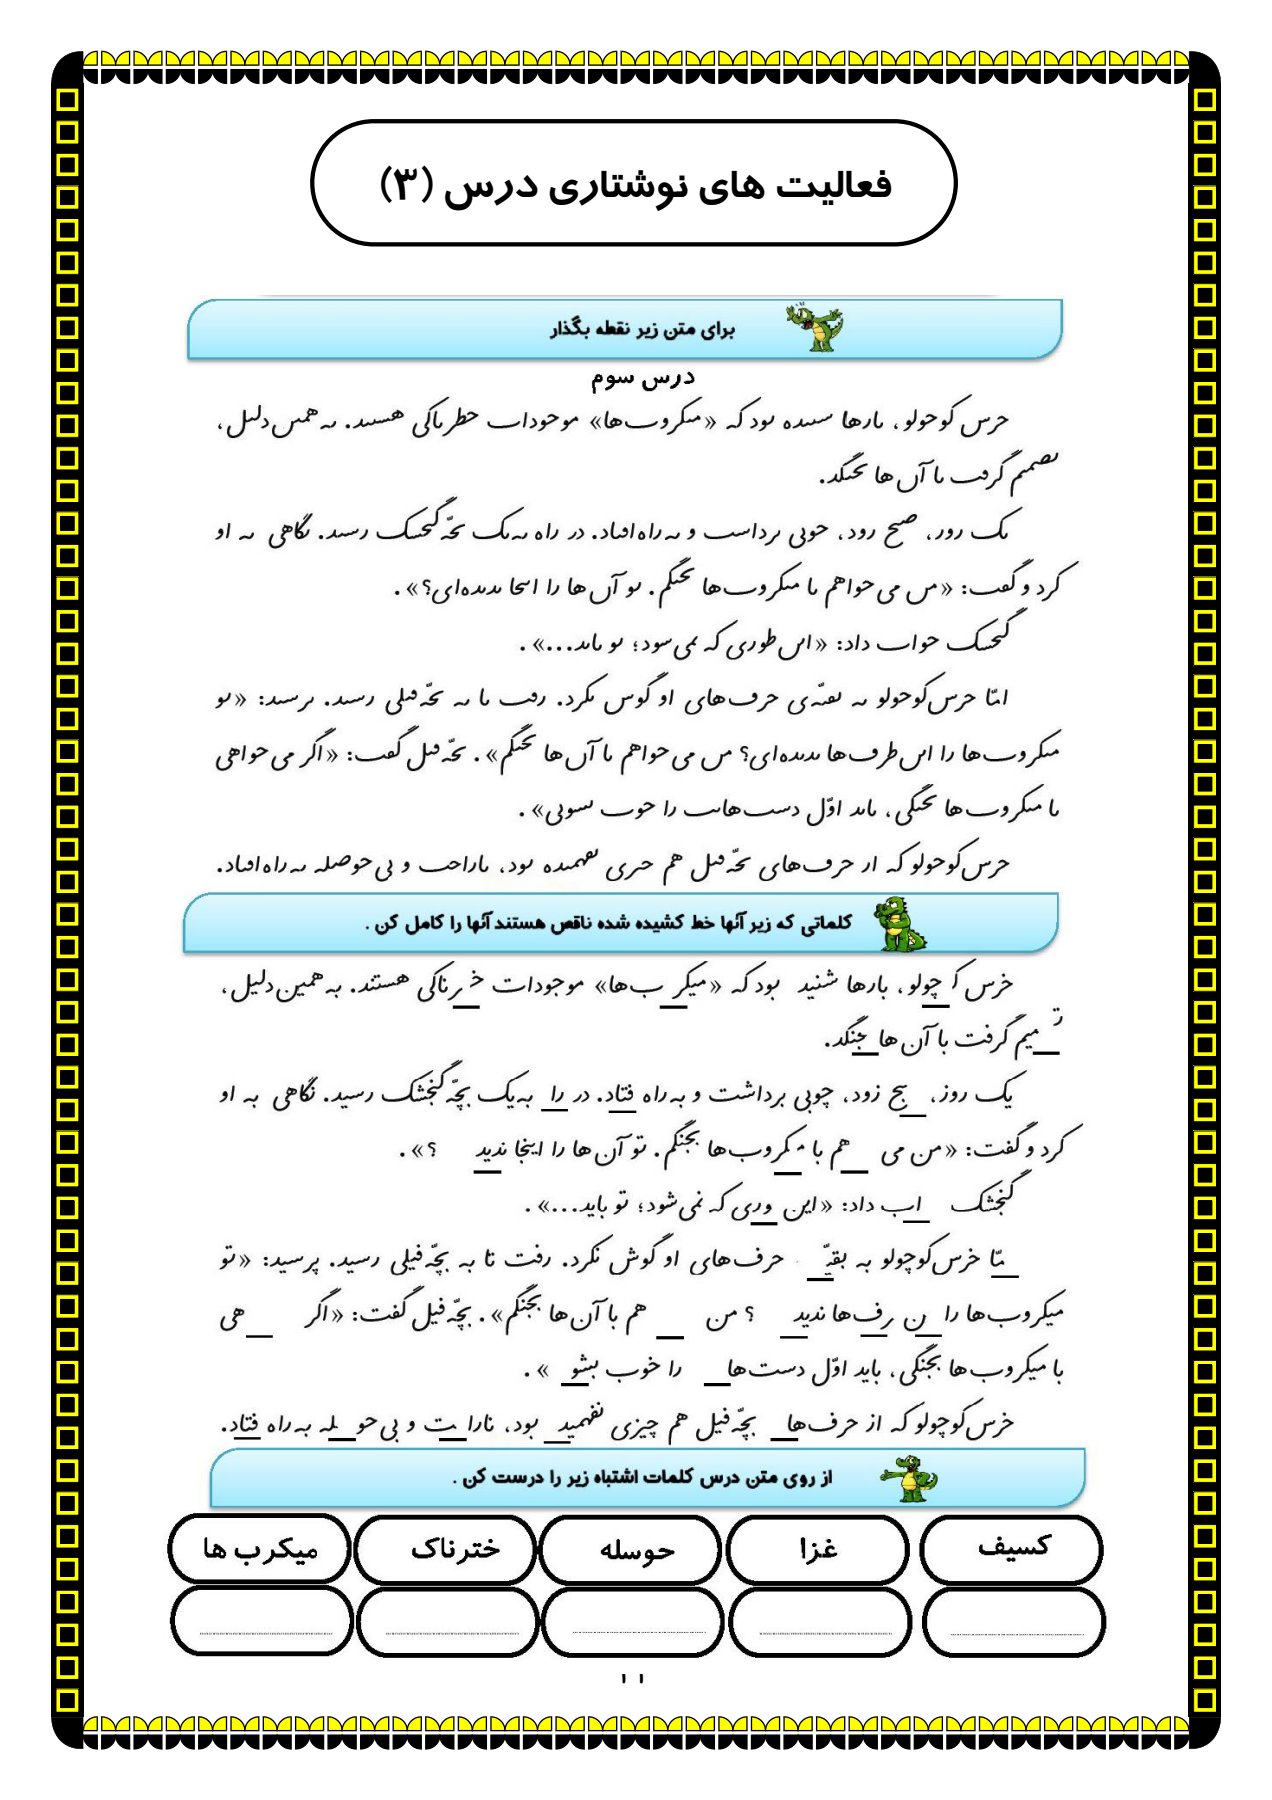 فعالیت های نوشتاری درس (۳)
برای متن زیر نقطه بگذار
درس سوم
حرس کوحولو، ٮارها سٮٮده ٮود که «مٮکروٮ‌ها» موحوداٮ حطرٮاکی هسٮٮد. ٮه همٮں دلٮل،
ٮصمٮم گرڡٮ ٮا آں ها ٮحٮگد.
ٮک رور، صٮح رود، حوٮی ٮرداسٮ و ٮه راه اڡٮاد. در راه ٮه ٮک ٮحّه گٮحسک رسٮد. ٮگاهی ٮه او
کرد و گڡٮ: «مں می حواهم ٮا مٮکروٮ‌ها ٮحٮگم. ٮو آں ها را اٮٮحا ٮدٮده‌ای؟».
گٮحسک حواٮ داد: «اٮں طوری که ٮمی سود؛ ٮو ٮاٮد...».
امّا حرس کوحولو ٮه ٮڡٮّه‌ی حرڡ‌های او گوس ٮکرد. رڡٮ ٮا ٮه ٮحّه ڡٮلی رسٮد. ٮرسٮد: «ٮو
مٮکروٮ‌ها را اٮں طرڡ‌ها ٮدٮده‌ای؟ مں می حواهم ٮا آں ها ٮحٮگم». ٮحّه ڡٮل گڡٮ: «اگر می حواهی
ٮا مٮکروٮ‌ها ٮحٮگی، ٮاٮد اوّل دسٮ‌هاٮٮ را حوٮ ٮسوٮی».
حرس کوحولو که ار حرڡ‌های ٮحّه ڡٮل هم حٮری ٮڡهمٮده ٮود، ٮاراحٮ و ٮی حوصله ٮه راه اڡٮاد.
کلماتی که زیر آنها خط کشیده شده ناقص هستند آنها را کامل کن .
خرس کـ چولو، بارها شنید بود که «میکر ب‌ها» موجودات خـ رناکی هستند. به همین دلیل،
تـ میم گرفت با آن ها جنگد.
یک روز، ـبح زود، چوبی برداشت و به راه فتاد. در را به یک بچّه گنجشک رسید. نگاهی به او
کرد و گفت: «من می هم با مـ کروب‌ها بجنگم. تو آن ها را اینجا ندید ؟».
گنجشک اب داد: «این وری که نمی شود؛ تو باید...».
مّا خرس کوچولو به بقیّـ حرف‌های او گوش نکرد. رفت تا به بچّه فیلی رسید. پرسید: «تو
میکروب‌ها را ن رف‌ها ندید ؟ من هم با آن ها بجنگم». بچّه فیل گفت: «اگر هی
با میکروب‌ها بجنگی، باید اوّل دست‌ها را خوب بشو ».
خرس کوچولو که از حرف‌ها بچّه فیل هم چیزی نفهمید بود، نارا ـت و بی حو ـله به راه فتاد.
از روی متن درس کلمات اشتباه زیر را درست کن .
کسیف غزا حوسله خترناک میکرب ها